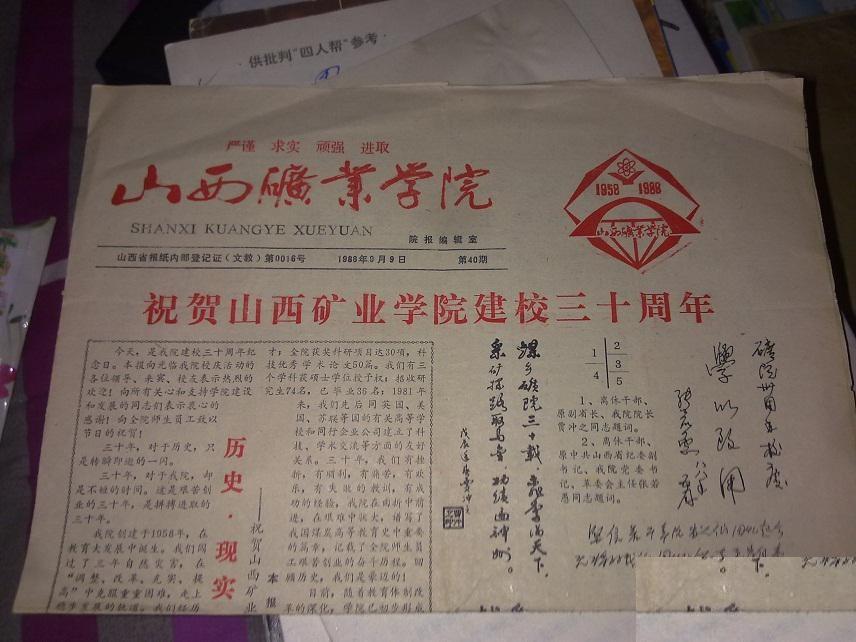 供批判"四人帮"参考
严谨 求实 顽强 进取
山西礦業学院
SHANXI KUANGYE XUEYUAN
院报编辑室
山西省报纸内部登记证(文教)第0016号 1988年9月9日 第40期
1958 1988
山西礦業学院
祝贺山西矿业学院建校三十周年
今天,是我院建校三十周年纪
念日。本报向光临我院校庆活动的
各位领导、来宾、校友表示热烈的
欢迎!向所有关心和支持学院建设
和发展的同志们表示衷心的
感谢!向全院师生员工致以
节日的祝贺!
三十年,对于历史,只
是转瞬即逝的一闪。
三十年,对于我院,却
是不短的时间。这是艰苦创
业的三十年,是拼搏进取的
三十年。
我院创建于1958年,在
教育大发展中诞生。我们闯
过了三年自然灾害,在
"调整、改革、充实、提
高"中克服重重困难,走上
稳步发展的轨道。我们经历
历史·现实
——祝贺山西矿业
本报
才;全院获奖科研项目达30项,科
技优秀学术论文50篇。我们有三
个学科获硕士学位授予权;招收研
究生74名,已毕业36名;1981年
来,我们先后同英国、美
国、苏联等国的有关高等学
校和同行企业公司建立了科
技、学术交流等方面的友好
关系。三十年,我们有挫
折,有顺利,有痛苦,有欢
乐,有失败的教训,有成
功的经验,我院在曲折中前
进,在艰难中壮大,谱写了
我国煤炭高等教育史中重要
的篇章,记载了全院师生员
工艰苦创业的奋斗历程。回
顾历史,我们是豪迈的!
目前,随着教育体制改
革的深化,学院已初步形成
煤乡矿院三十载,桃李满天下。
采矿探路驭乌金,功绩画神州。
1 2 3
4 5
1、离休干部、
原副省长、我院院长
贾冲之同志题词。
2、离休干部、
原中共山西省纪委副
书记、我院党委书
记、革委会主任张若
愚同志题词。
矿院卅周年校庆
學以致用